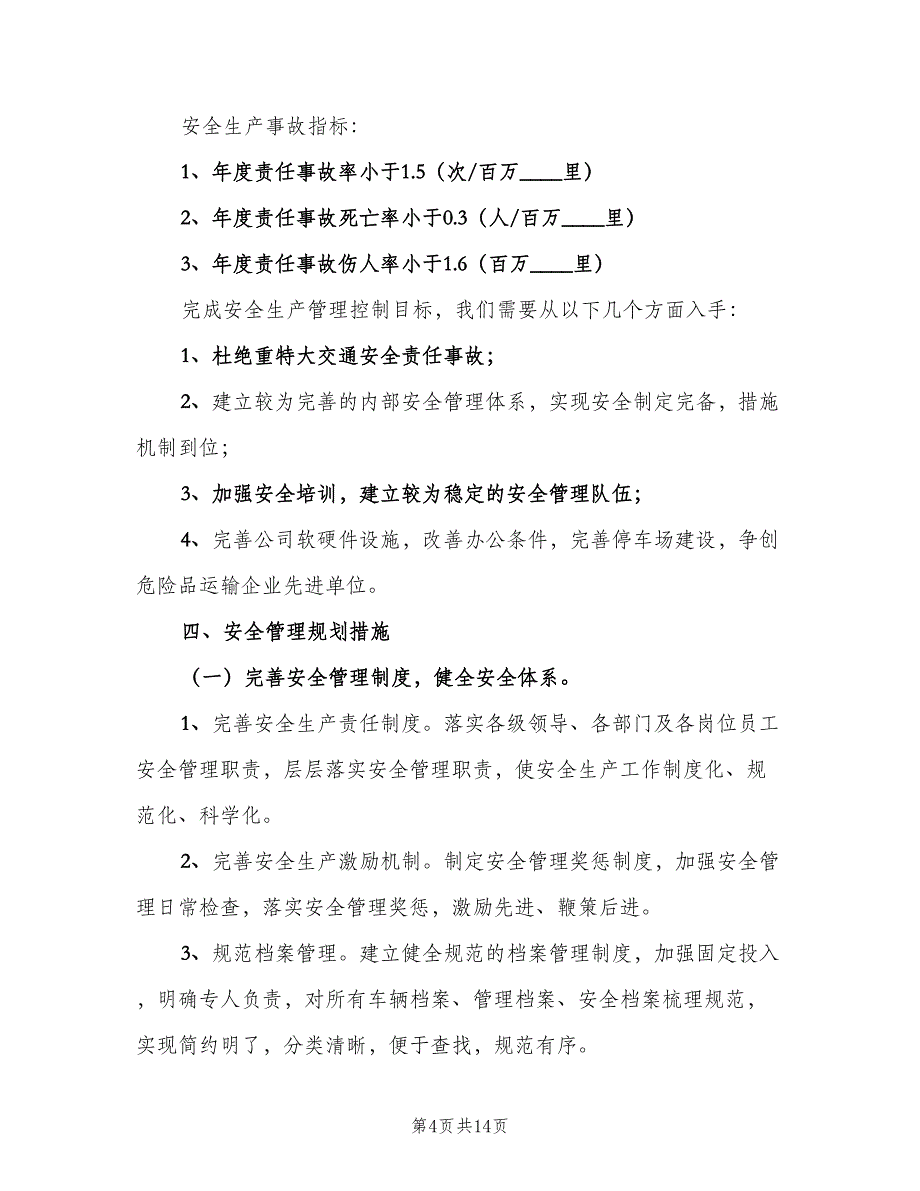 安全生产事故指标：
1、年度责任事故率小于1.5（次/百万____里）
2、年度责任事故死亡率小于0.3（人/百万____里）
3、年度责任事故伤人率小于1.6（百万____里）
完成安全生产管理控制目标，我们需要从以下几个方面入手：
1、杜绝重特大交通安全责任事故；
2、建立较为完善的内部安全管理体系，实现安全制定完备，措施
机制到位；
3、加强安全培训，建立较为稳定的安全管理队伍；
4、完善公司软硬件设施，改善办公条件，完善停车场建设，争创
危险品运输企业先进单位。
四、安全管理规划措施
（一）完善安全管理制度，健全安全体系。
1、完善安全生产责任制度。落实各级领导、各部门及各岗位员工
安全管理职责，层层落实安全管理职责，使安全生产工作制度化、规
范化、科学化。
2、完善安全生产激励机制。制定安全管理奖惩制度，加强安全管
理日常检查，落实安全管理奖惩，激励先进、鞭策后进。
3、规范档案管理。建立健全规范的档案管理制度，加强固定投入
，明确专人负责，对所有车辆档案、管理档案、安全档案梳理规范，
实现简约明了，分类清晰，便于查找，规范有序。
第4页共14页